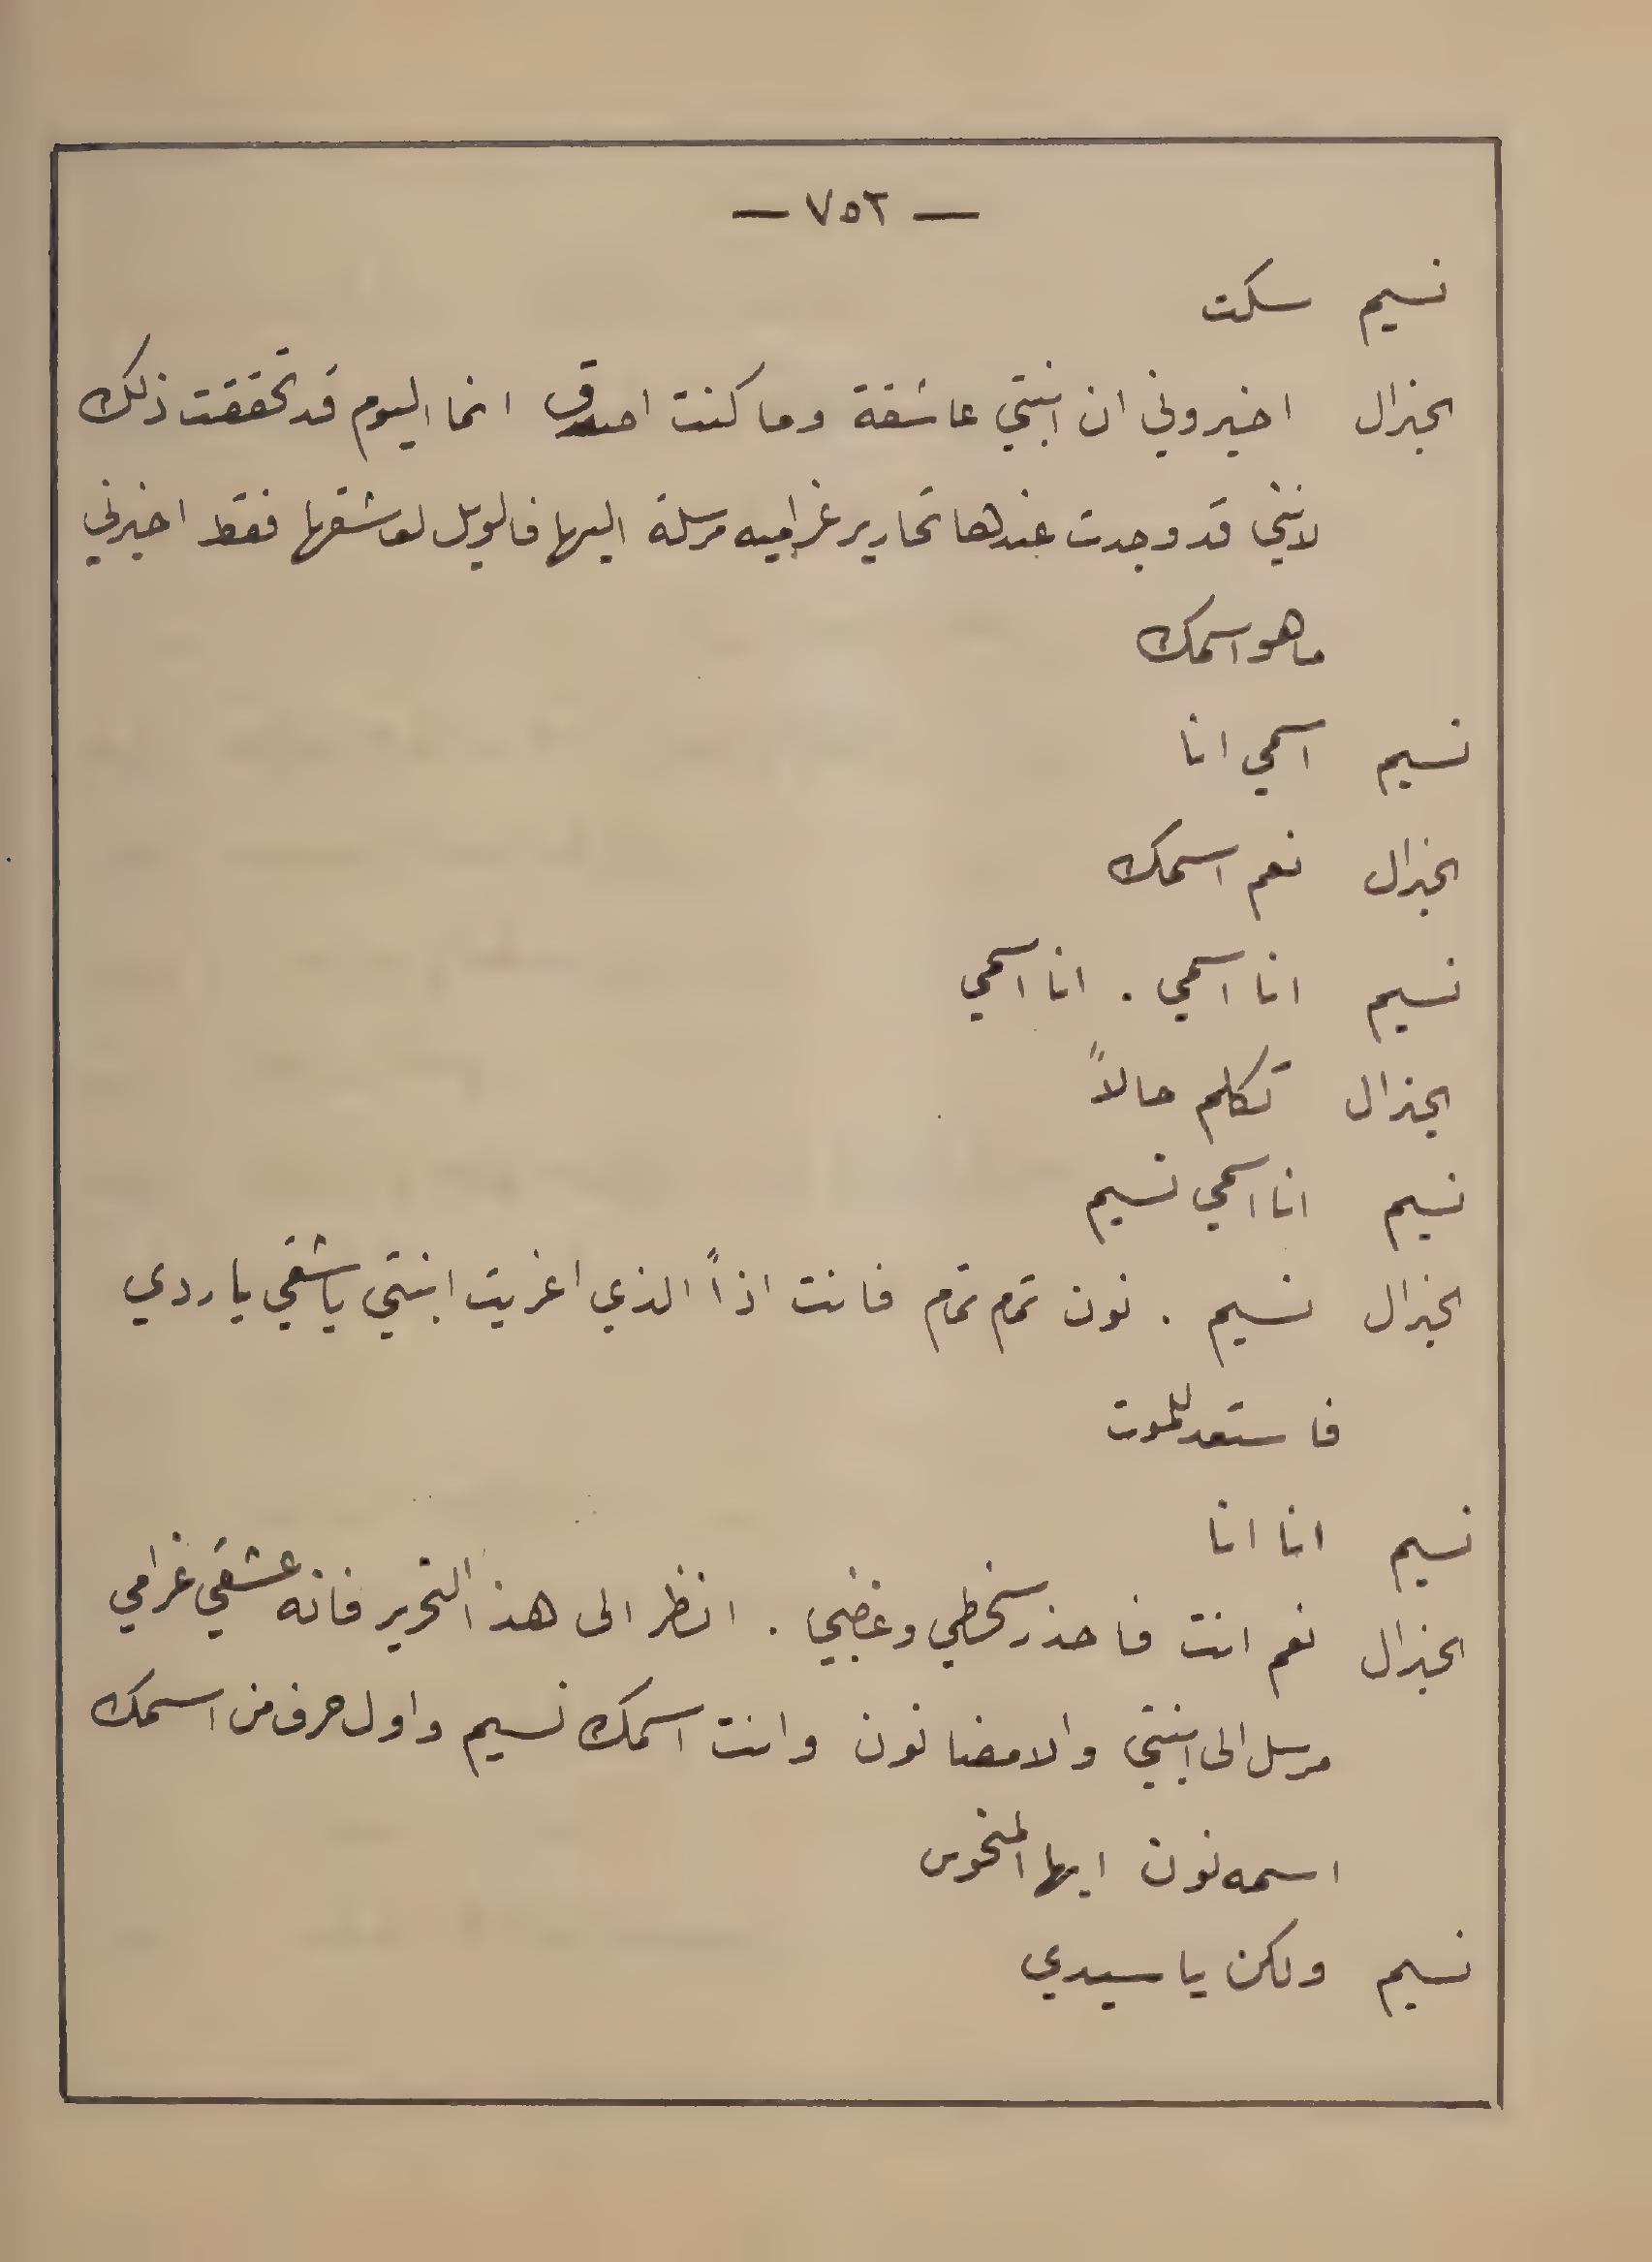 — ٧٥٢ —
نسيم سكت
الجنرال اخبروني ان ابنتي عاشقة وما كنت اصدق انما اليوم قد تحققت ذلك
لانني قد وجدت عندها تحارير غراميه مرسلة اليها فالويل لعاشقها فقط اخبرني
ما هو اسمك
نسيم اسمي انا
الجنرال نعم اسمك
نسيم انا اسمي . انا اسمي
الجنرال تكلم حالاً
نسيم انا اسمي نسيم
الجنرال نسيم . نون تمام تمام فانت اذاً الذي اغريت ابنتي ياشقي يا ردي
فاستعد للموت
نسيم انا انا
الجنرال نعم انت فاحذر سخطي وغضبي . انظر الى هذا التحرير فانه عشقي غرامي
مرسل الى ابنتي والامضا نون وانت اسمك نسيم واول حرف من اسمك
اسمه نون ايها المنحوس
نسيم ولكن يا سيدي